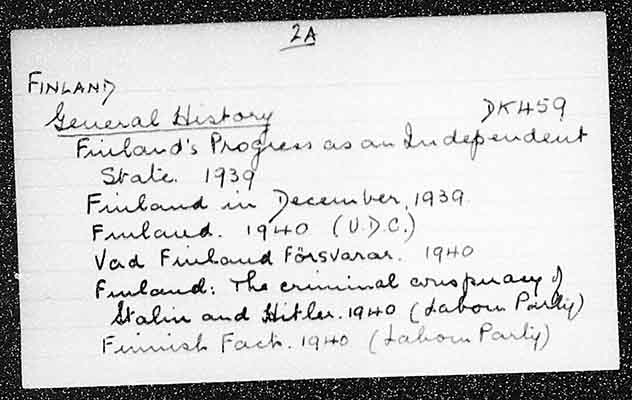 2A
FINLAND
General History DK459
Finland's Progress as an Independent
State. 1939
Finland in December, 1939.
Finland. 1940 (U.D.C.)
Vad Finland Försvarar. 1940
Finland: The criminal conspiracy of
Stalin and Hitler. 1940 (Labour Party)
Finnish Facts. 1940 (Labour Party)